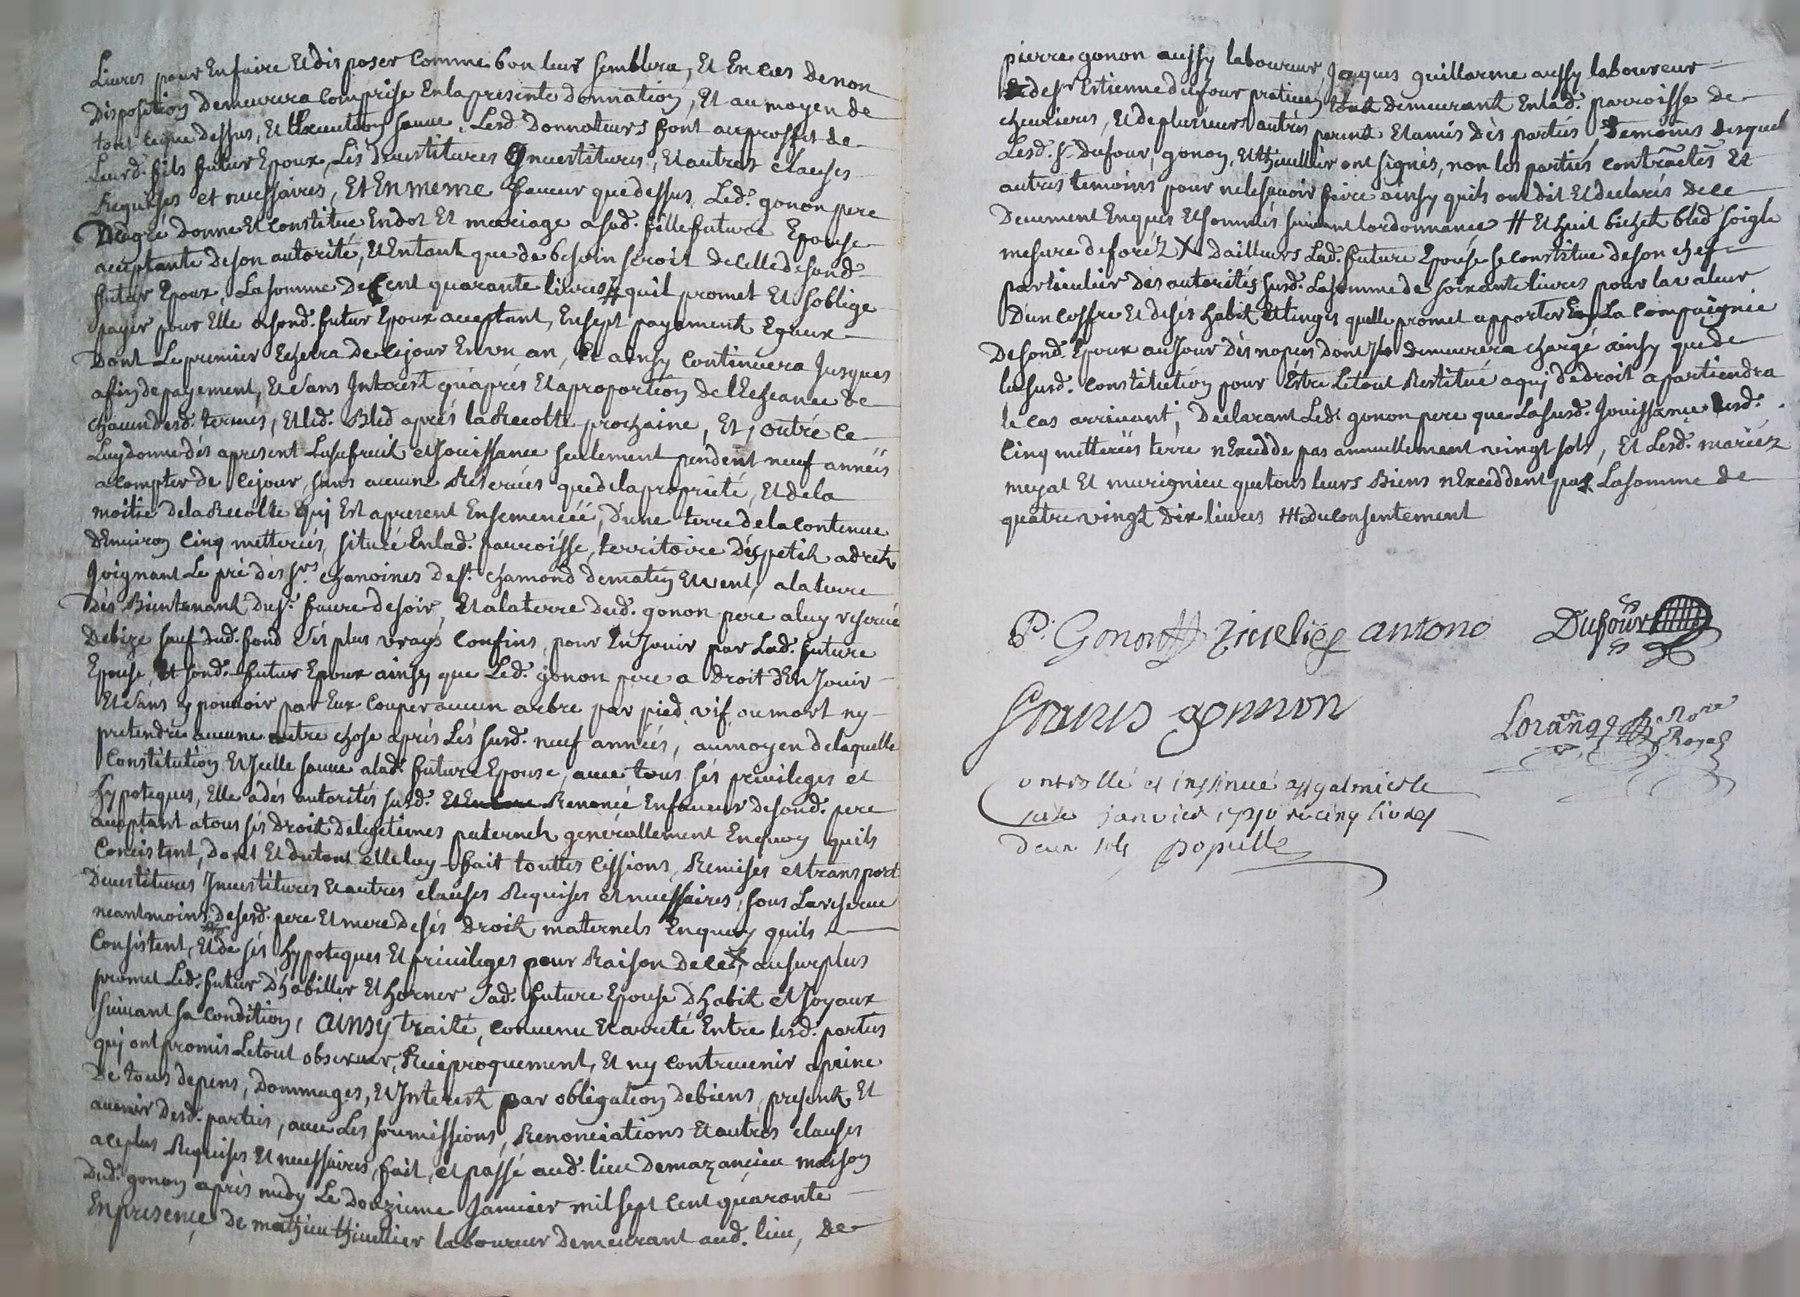 Livres pour En faire Et disposer Comme bon leur semblera, Et En cas de non
Disposition demeurera Comprise En la presente donnation, Et au moyen de
tout ce que dessus, Et Execution sauve, Lesd. Donnateurs font au proffit de
Leurd. fils futur Epoux, Les devestitures Investitures, Et autres clauses
Requises et necessaires, Et En meme faveur que dessus, Led. gonon pere
De gré donne Et Constitue En dot Et mariage a sad. fille future Epouse
acceptante de son autorité, Et En tant que de besoin seroit de celle de sond.
futur Epoux, La somme de Cent quarante livres # quil promet Et soblige
payer pour Elle a sond. futur Epoux acceptant, En sept payement Egaux
Dont Le premier Echerra de ce jour En un an, Et ainsy Continuera Jusques
a fin de payement, Et sans Interest qu'aprés Et a proportion de l'Echeance de
chacun desd. termes, Et led. Bled aprés la Recolte prochaine, Et, outre ce
Luy donne dés apresent Lusufruit et Jouissance seulement pendent neuf années
a Compter de ce jour, sans aucune Reserves que de la proprieté, Et de la
moitié de la Recolte qui Est apresent Ensemencée, d'une terre de la contenue
d'Environ Cinq metterées, située En lad. parroisse, territoire dés petits adrets
Joignant Le pré dés srs. chanoines de st. chamond de matin Et vent, a la terre
dés Bientenants du sr. faure de soir, Et a la terre dud. gonon pere a luy reservée
de bize sauf dud. fond sés plus vrays Confins, pour En Jouir par Lad. future
Epouse, Et sond. futur Epoux ainsy que Led. gonon pere a droit d'En Jouir
Et sans y pouvoir par Eux Couper aucun arbre par pied vif ou mort ny
pretendre aucune autre chose aprés Lés susd. neuf années, au moyen de laquelle
Constitution Et Icelle sauve a lad. future Epouse, avec tous sés privileges et
hypoteques, Elle a dés autorités susd. Renoncé En faveur de sond. pere
acceptant a tous sés droits de legitimes paternels generallement En quoy quils
Concistent, dont Et du tout elle luy fait touttes Cessions, Remises et transport
Devestitures Investitures Et autres clauses Requises et necessaires, sous La reserve
neantmoins de sesd. pere Et mere de sés droits maternels En quoy quils
Consistent, Et de sés hypoteques Et privileges pour Raison de ce X, au surplus
promet Led. futur D'habiller Et horner sad. future Epouse d'habits et Joyaux
suivant sa condition, ainsy traité, convenu Et arreté Entre lesd. parties
qui ont promis Le tout observer, Reciproquement, Et ny contrevenir a peine
de tous depens, dommages, Et Interests par obligation de biens, presents Et
avenir desd. parties, avec Les soumissions, Renonciations Et autres clauses
a ce plus Requises Et necessaires, fait, et passé aud. lieu de mazancieu maison
dud. gonon aprés midy Le douzieme Janvier mil sept Cent quaronte
En presence de mathieu thivellier laboureur demeurant aud. lieu, de
pierre gonon aussy laboureur, Jaques guillarme aussy laboureur
de sr. Estienne dufour praticien tous demeurant En lad. parroisse de
chevrieres, Et de plusieurs autres parents Et amis dés parties, temoins desquels
Lesd. sr. Dufour, gonon, Et thivellier ont signés, non les parties contractés Et
autres temoins pour ne le sçavoir faire ainsy quils ont dit Et declarés de ce
Deuement Enquis Et sommés suivant lordonnance # Et huit bichets bled soigle
mesure de foréz X d'ailleurs Lad. future Epouse se constitue de son chef
particulier dés autorités susd. La somme de soixante livres pour la valeur
D'un Coffre Et de sés habits Et linges quelle promet apporter En La Compagnie
De sond. Epoux au Jour dés nopces dont Il demeurera chargé ainsy que de
la susd. Constitution pour Estre Le tout Restitué a qui de droit apartiendra
le cas arrivant, Declarant Led. gonon pere que La susd. Jouissance desd.
Cinq metterées terre n'Excedde pas annuellement vingt sols, Et Lesd. mariéz
meyat Et murignieu que tous leurs Biens n'Exceddent pas La somme de
quatre vingt dix livres ## du consentement
P. Gonon thivelier antono Dufour
frauris gonnon
Lorang Re Nore Royal
Controllé et insinué a st galmier le
janvier 1740 r cinq livres
deux sols populle